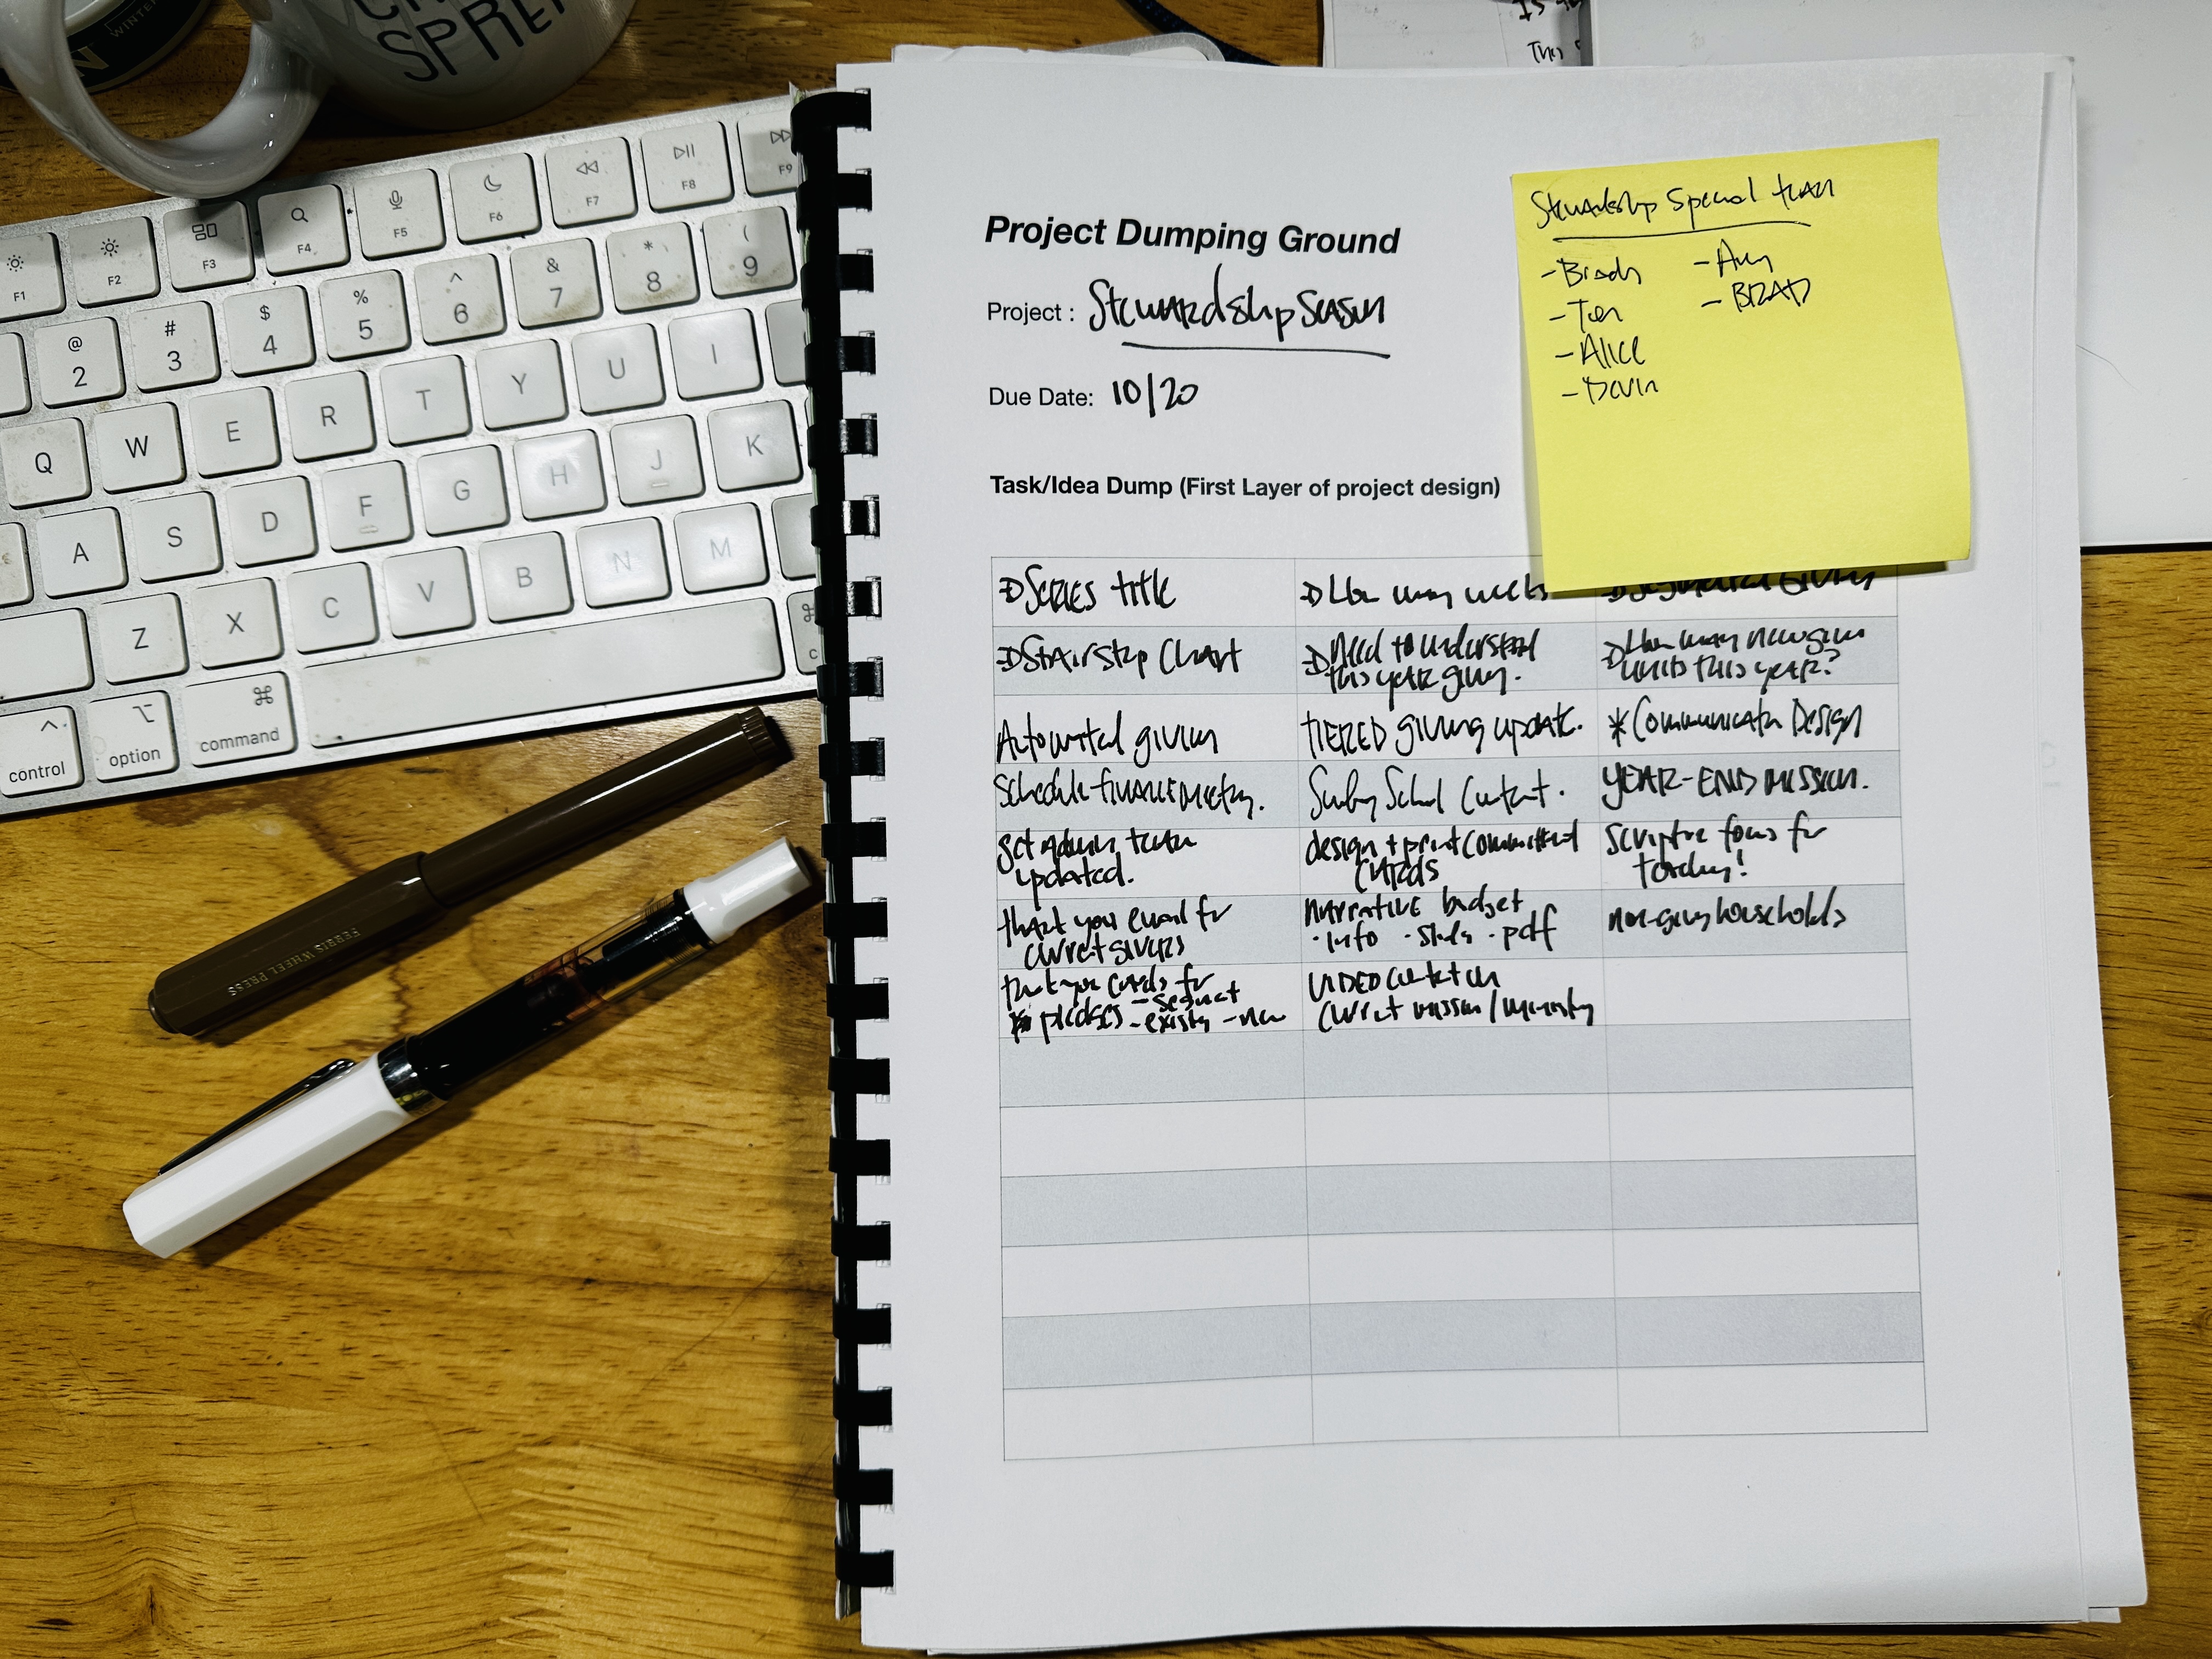 SPRE
WINTER
Is
This
F1
F2
F3
F4
F5
F6
F7
F8
F9
@ 2
# 3
$ 4
% 5
^ 6
& 7
* 8
( 9
Q W E R T Y U I
A S D F G H J K
Z X C V B N M
control
option
command
FERRIS WHEEL PRESS
Project Dumping Ground
Project : Stewardship Season
Due Date: 10/20
Stewardship Special team
- Brady
- Tom
- Alice
- Devin
- Amy
- BRAD
Task/Idea Dump (First Layer of project design)
Series title
How many weeks
Designated Giving
Stairstep Chart
Need to understand
this year giving.
How many new giving
units this year?
Automated giving
TIERED giving update.
* Communication Design
Schedule finance meeting.
Sunday School Content.
YEAR-END MISSION.
get admin team
updated.
design + print commitment
CARDS
Scripture focus for
teaching!
thank you email for
current givers
narrative budget
· info · slides · pdf
non-giving households
thank you cards for
pledges - segment
- existing - new
VIDEO content on
current mission/ministry